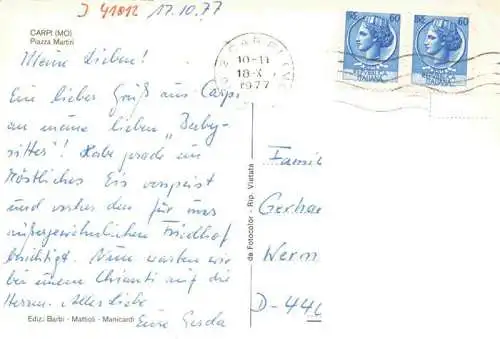 J 41812 17.10.77
CARPI (MO)
Piazza Martiri
Meine Lieben!
Ein lieber Gruß aus Carpi
an meine lieben "Baby-
sitter"! Habe gerade ein
köstliches Eis verspeist
und vorher den für uns
außergewöhnlichen Friedhof
besichtigt. Nun warten wir
bei einem Chianti auf die
Herren. Alles Liebe
Eure Gerda
Ediz. Barbi - Mattioli - Manicardi
da Fotocolor - Rip. Vietata
CARPI
10-11
18-X
1977
60
60
Famil
Gerhar
Wern
D-44